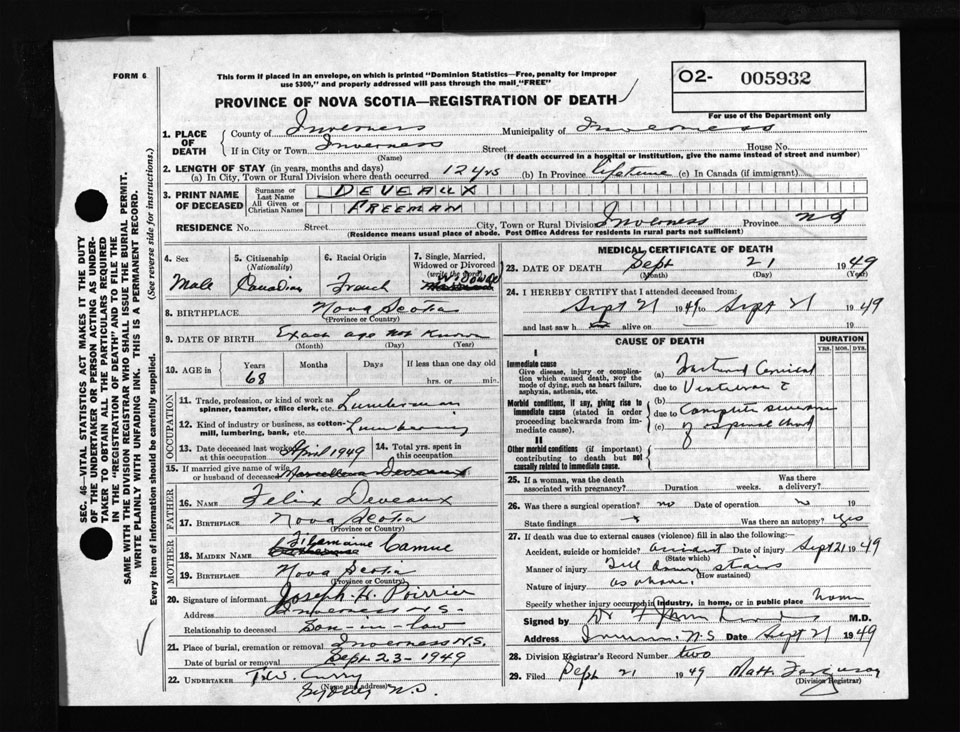 FORM 6
This form if placed in an envelope, on which is printed "Dominion Statistics—Free, penalty for improper
use $300," and properly addressed will pass through the mail "FREE"
O2- 005932
For use of the Department only
PROVINCE OF NOVA SCOTIA—REGISTRATION OF DEATH
SEC. 46—VITAL STATISTICS ACT MAKES IT THE DUTY
OF THE UNDERTAKER OR PERSON ACTING AS UNDER-
TAKER TO OBTAIN ALL THE PARTICULARS REQUIRED
IN THE "REGISTRATION OF DEATH" AND TO FILE THE
SAME WITH THE DIVISION REGISTRAR WHO SHALL ISSUE THE BURIAL PERMIT.
WRITE PLAINLY WITH UNFADING INK. THIS IS A PERMANENT RECORD.
Every item of information should be carefully supplied. (See reverse side for instructions.)
1. PLACE OF DEATH
County of Inverness Municipality of Inverness
If in City or Town Inverness Street House No.
(Name) (If death occurred in a hospital or institution, give the name instead of street and number)
2. LENGTH OF STAY (in years, months and days)
(a) In City, Town or Rural Division where death occurred 12 yrs (b) In Province lifetime (c) In Canada (if immigrant)
3. PRINT NAME OF DECEASED
Surname or Last Name DEVEAUX
All Given or Christian Names FREEMAN
RESIDENCE No. Street City, Town or Rural Division Inverness Province NS
(Residence means usual place of abode. Post Office Address for residents in rural parts not sufficient)
4. Sex Male
5. Citizenship (Nationality) Canadian
6. Racial Origin French
7. Single, Married, Widowed or Divorced (write the word) Widowed
8. BIRTHPLACE Nova Scotia
(Province or Country)
9. DATE OF BIRTH Exact age not known
(Month) (Day) (Year)
10. AGE in Years 68 Months Days If less than one day old hrs. or min.
OCCUPATION
11. Trade, profession, or kind of work as
spinner, teamster, office clerk, etc. Lumberman
12. Kind of industry or business, as cotton-
mill, lumbering, bank, etc. Lumbering
13. Date deceased last worked at this occupation April 1949
14. Total yrs. spent in this occupation
15. If married give name of wife
or husband of deceased Deveaux
FATHER
16. NAME Felix Deveaux
17. BIRTHPLACE Nova Scotia
(Province or Country)
MOTHER
18. MAIDEN NAME Camue
19. BIRTHPLACE Nova Scotia
(Province or Country)
20. Signature of informant Joseph H. Poirrier
Address Inverness N.S.
Relationship to deceased Son-in-law
21. Place of burial, cremation or removal Inverness N.S.
Date of burial or removal Sept 23-1949
22. UNDERTAKER T.W. Curry
(Name and address) Sydney N.S.
MEDICAL CERTIFICATE OF DEATH
23. DATE OF DEATH Sept 21 1949
(Month) (Day) (Year)
24. I HEREBY CERTIFY that I attended deceased from:
Sept 21 1949 to Sept 21 1949
and last saw h alive on 19
CAUSE OF DEATH
DURATION
YRS. MOS. DYS.
I
Immediate cause
Give disease, injury or complica-
tion which caused death, NOT the
mode of dying, such as heart failure,
asphyxia, asthenia, etc.
(a) Fractured Cervical
due to Vertebrae
Morbid conditions, if any, giving rise to
immediate cause (stated in order
proceeding backwards from im-
mediate cause).
(b) Complete severance
due to
(c) of spinal chord
II
Other morbid conditions (if important)
contributing to death but not
causally related to immediate cause.
25. If a woman, was the death
associated with pregnancy? Duration weeks. Was there a delivery?
26. Was there a surgical operation? no Date of operation 19
State findings Was there an autopsy? yes
27. If death was due to external causes (violence) fill in also the following:—
Accident, suicide or homicide? accident Date of injury Sept 21 1949
(State which)
Manner of injury Fell down stairs
(How sustained)
Nature of injury as above
Specify whether injury occurred in industry, in home, or in public place home
Signed by Dr M.D.
Address N.S Date Sept 21 1949
28. Division Registrar's Record Number two
29. Filed Sept 21 1949 Matt Ferguson
(Division Registrar)